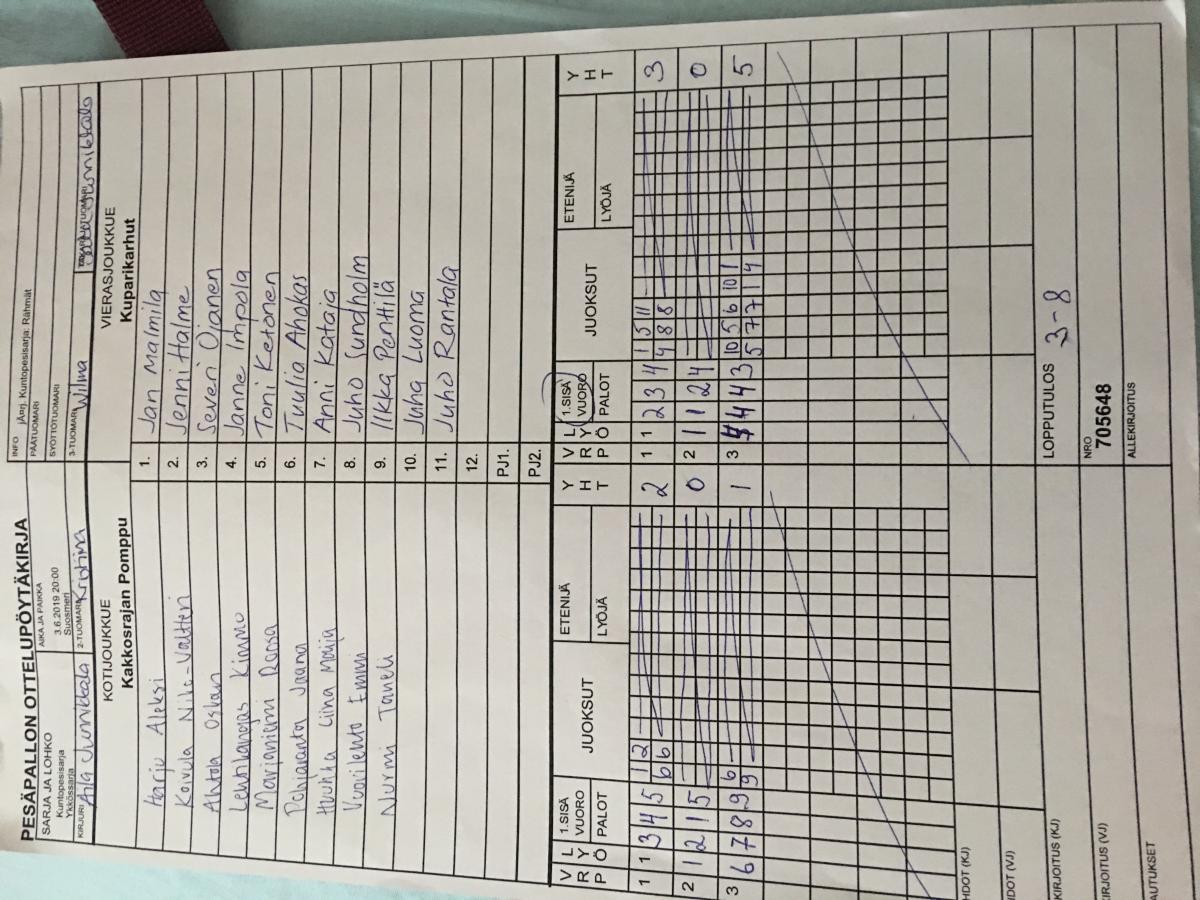 PESÄPALLON OTTELUPÖYTÄKIRJA
SARJA JA LOHKO
Kuntopesisarja
Ykkössarja
AIKA JA PAIKKA
3.6.2019 20:00
Suosmeri
INFO jÄrj. Kuntopesisarja: Rähmät
PÄÄTUOMARI
SYÖTTÖTUOMARI
KIRJURI
2-TUOMARI Kristina
3-TUOMARI Wilma
KOTIJOUKKUE
Kakkosrajan Pomppu
VIERASJOUKKUE
Kuparikarhut
Harju Aleksi 1. Jan Malmila
Koivula Nilo-Valtteri 2. Jenni Halme
Ahtola Oskari 3. Severi Ojanen
Lehtikangas Kimmo 4. Janne Impola
Marjaniemi Roosa 5. Toni Ketonen
Pohjaranta Jaana 6. Tuulia Ahokas
Huuhka Liina Maija 7. Anni Kataja
Vuorilehto Emmi 8. Juho Sundholm
Nurmi Taneli 9. Ilkka Penttilä
10. Juha Luoma
11. Juho Rantala
12.
PJ1.
PJ2.
V R P L Y Ö 1.SISÄ VUORO PALOT JUOKSUT ETENIJÄ LYÖJÄ Y H T
V R P L Y Ö 1.SISÄ VUORO PALOT JUOKSUT ETENIJÄ LYÖJÄ Y H T
1 1 3 4 5 1 2 2 1 1 2 3 4 1 5 11 3
6 6 4 8 8
2 1 2 1 5 0 2 1 1 2 4 0
3 6 7 8 9 6 1 3 4 4 4 3 10 5 6 10 1 5
9 5 7 7 1 4
HDOT (KJ)
IDOT (VJ)
KIRJOITUS (KJ) LOPPUTULOS 3-8
KIRJOITUS (VJ) NRO 705648
AUTUKSET ALLEKIRJOITUS